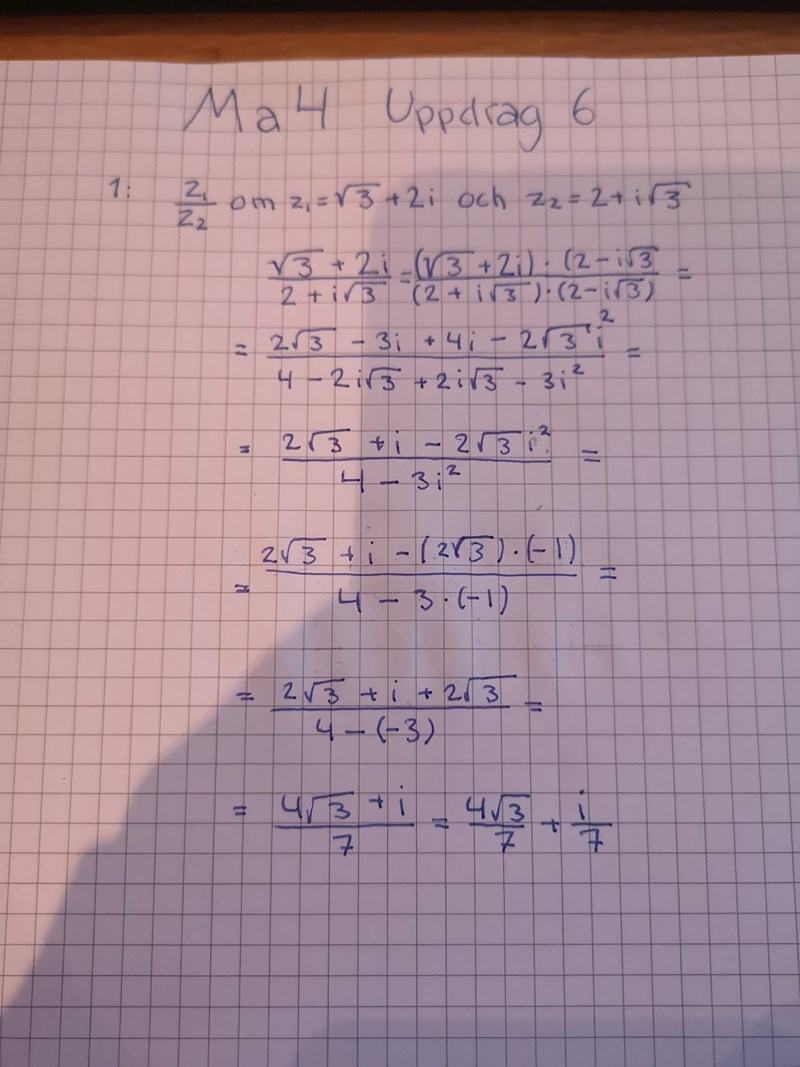 Ma4 Uppdrag 6
1: z₁/z₂ om z₁ = √3 + 2i och z₂ = 2 + i√3
(√3 + 2i)/(2 + i√3) = ((√3 + 2i) · (2 - i√3)/((2 + i√3) · (2 - i√3)) =
= (2√3 - 3i + 4i - 2√3 i²)/(4 - 2i√3 + 2i√3 - 3i²) =
= (2√3 + i - 2√3 i²)/(4 - 3i²) =
= (2√3 + i - (2√3) · (-1))/(4 - 3 · (-1)) =
= (2√3 + i + 2√3)/(4 - (-3)) =
= (4√3 + i)/7 = 4√3/7 + i/7